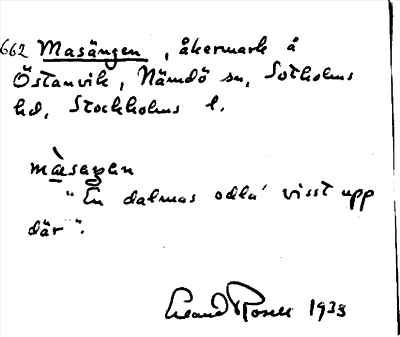 662 Masängen, åkermark å
Östanvik, Nämdö sn, Sotholms
hd, Stockholms l.
"En dalmas odla' visst upp
där".
Rosell 1933